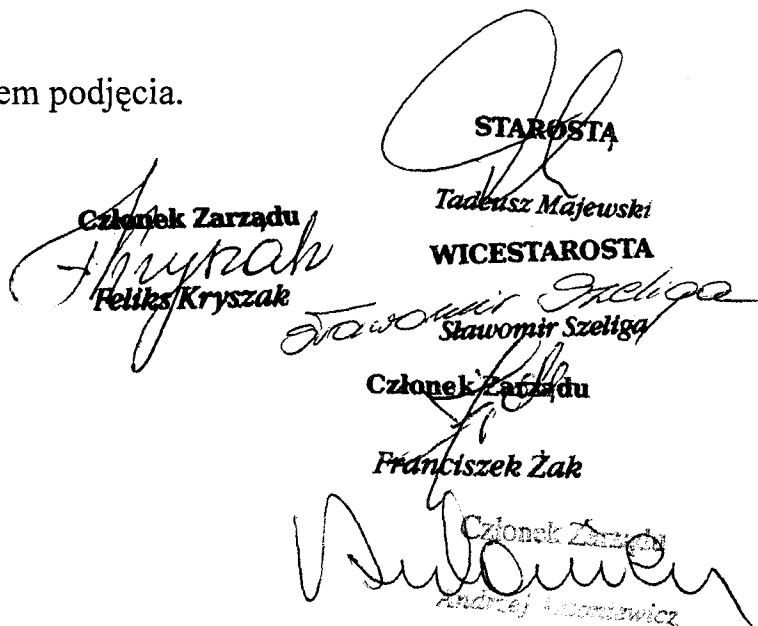 em podjęcia.
STAROSTA
Tadeusz Majewski
Członek Zarządu
FKryszak
Feliks Kryszak
WICESTAROSTA
Sławomir Szeliga
Sławomir Szeliga
Członek Zarządu
Franciszek Żak
Członek Zarządu
Andrzej